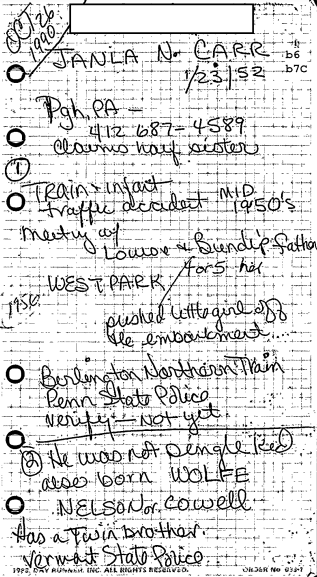 OCT 26
1990
JANLA N. CARR
b6
1/23/52
b7C
Pgh, PA —
412 687-4589
Claims half sister
①
TRAIN + infant
traffic accident MID
1950's
Meeting w/
Louise & Bundy's father
4 or 5 her
WEST PARK
1956
pushed little girl off
the embankment
Berlington Northern Train
Penn State Police
verify — not yet.
② He was not
also born WOLFE
NELSON or Cowell
Has a Twin brother.
Vermont State Police
1982, DAY RUNNER, INC. ALL RIGHTS RESERVED.
ORDER No